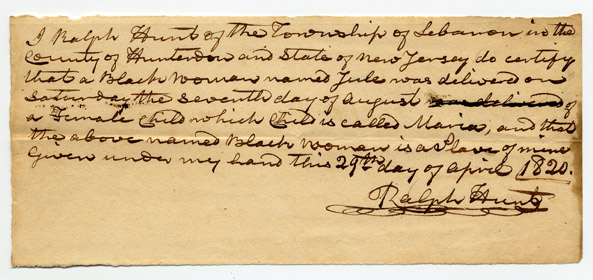 I Ralph Hunt of the Township of Lebanon in the
County of Hunterdon and State of New Jersey do certify
that a Black Woman named Jule was delivered on
Saturday the seventh day of August was delivered of
a Female Child which Child is called Maria, and that
the above named Black Woman is a Slave of mine
Given under my hand this 29th day of April 1820.
Ralph Hunt